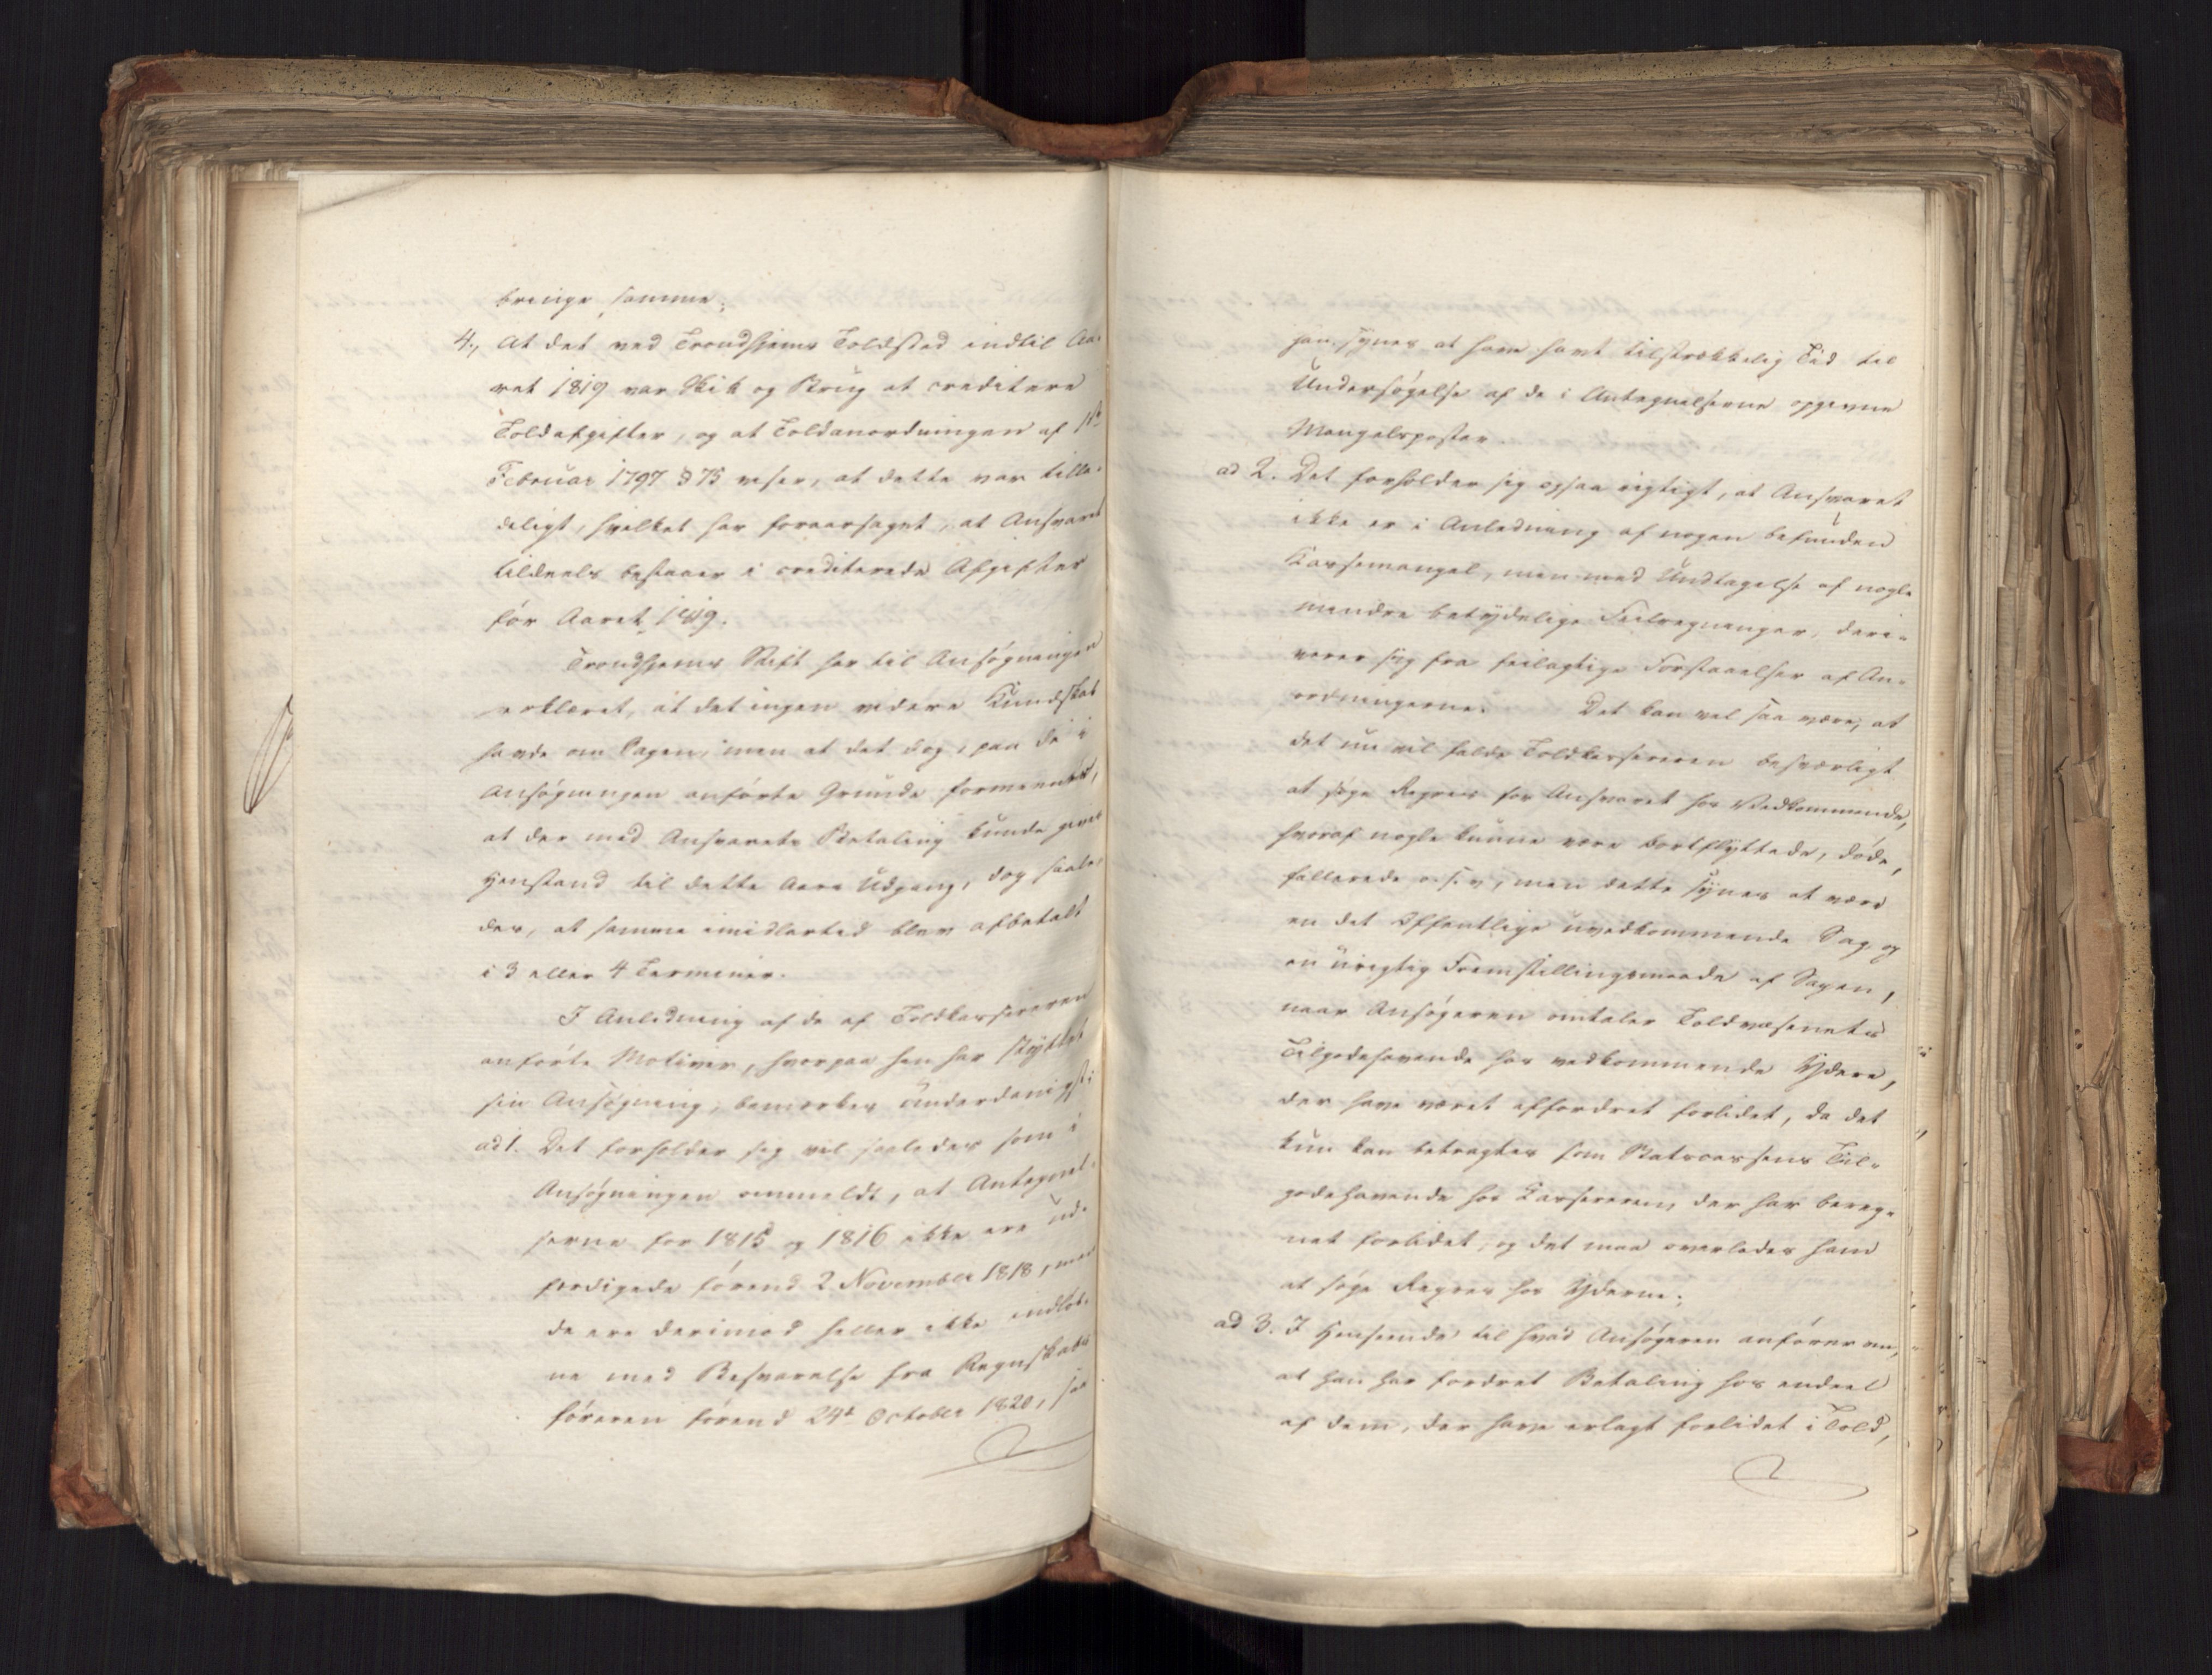 bringe samme;
4., At det ved Trondhjems Toldsted indtil Aa-
ret 1819 var Skik og Brug at creditere
Toldafgifter, og at Toldanordningen af 1ste
Februar 1797 § 75 viser, at dette var tilla-
deligt, hvilket har foraarsaget, at Ansvaret
tildeels bestaaer i crediterede Afgifter
før Aaret 1819.
Trondhjems Stift har til Ansøgningen
erklæret, at det ingen videre Kundskab
havde om Sagen, men at det dog, paa de i
Ansøgningen anførte Grunde formeente,
at der med Ansvarets Betaling kunde gives
Henstand til dette Aars Udgang, dog saale-
des, at samme imidlertid blev afbetalt
i 3 eller 4 Terminer.
I Anledning af de af Toldkassereren
anførte Motiver, hvorpaa han har støttet
sin Ansøgning, bemærkes underdanigst:
ad 1. Det forholder sig vel saaledes som i
Ansøgningen ommeldt, at Antegnel-
serne for 1815 og 1816 ikke ere ud-
færdigede førend 2 November 1818, men
de ere derimod heller ikke indkom-
ne med Besvarelse fra Regnskabs-
føreren førend 24de October 1820, saa
han synes at have havt tilstrækkelig Tid til
Undersøgelse af de i Antegnelserne opgivne
Mangelsposter.
ad 2. Det forholder sig ogsaa rigtigt, at Ansvaret
ikke er i Anledning af nogen befunden
Kassemangel, men med Undtagelse af nogle
mindre betydelige Feilregninger, deri-
verer sig fra feilagtige Forstaaelser af An-
ordningerne. Det kan vel saa være, at
det nu vil falde Toldkassereren besværligt
at søge Regres for Ansvaret hos Vedkommende,
hvoraf nogle kunne være bortflyttede, døde,
fallerede o. s. v., men dette synes at være
en det Offentlige uvedkommende Sag, og
en urigtig Fremstillingsmaade af Sagen,
naar Ansøgeren omtaler Toldvæsenets
Tilgodehavende hos vedkommende Ydere,
der have været affordret forlidet, da det
kun kan betragtes som Statscassens Til-
godehavende hos Kassereren, der har bereg-
net forlidet, og det maa overlades ham
at søge Regres hos Yderne;
ad 3. I Henseende til hvad Ansøgeren anfører om,
at han har fordret Betaling hos endeel
af dem, der have erlagt forlidet i Told,